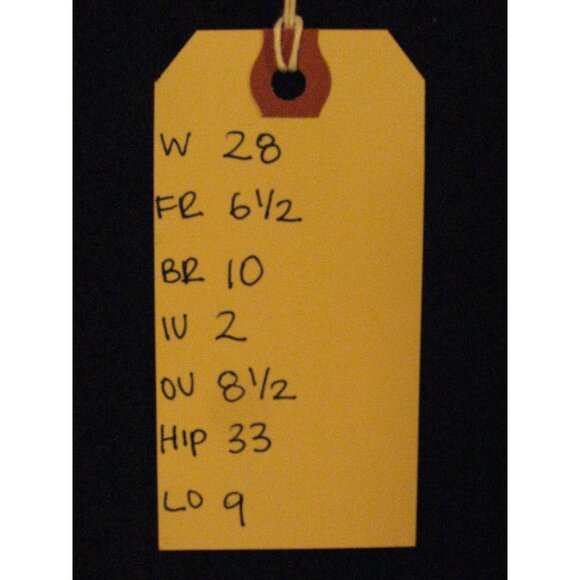 W 28
FR 6 1/2
BR 10
IU 2
OU 8 1/2
HIP 33
LO 9